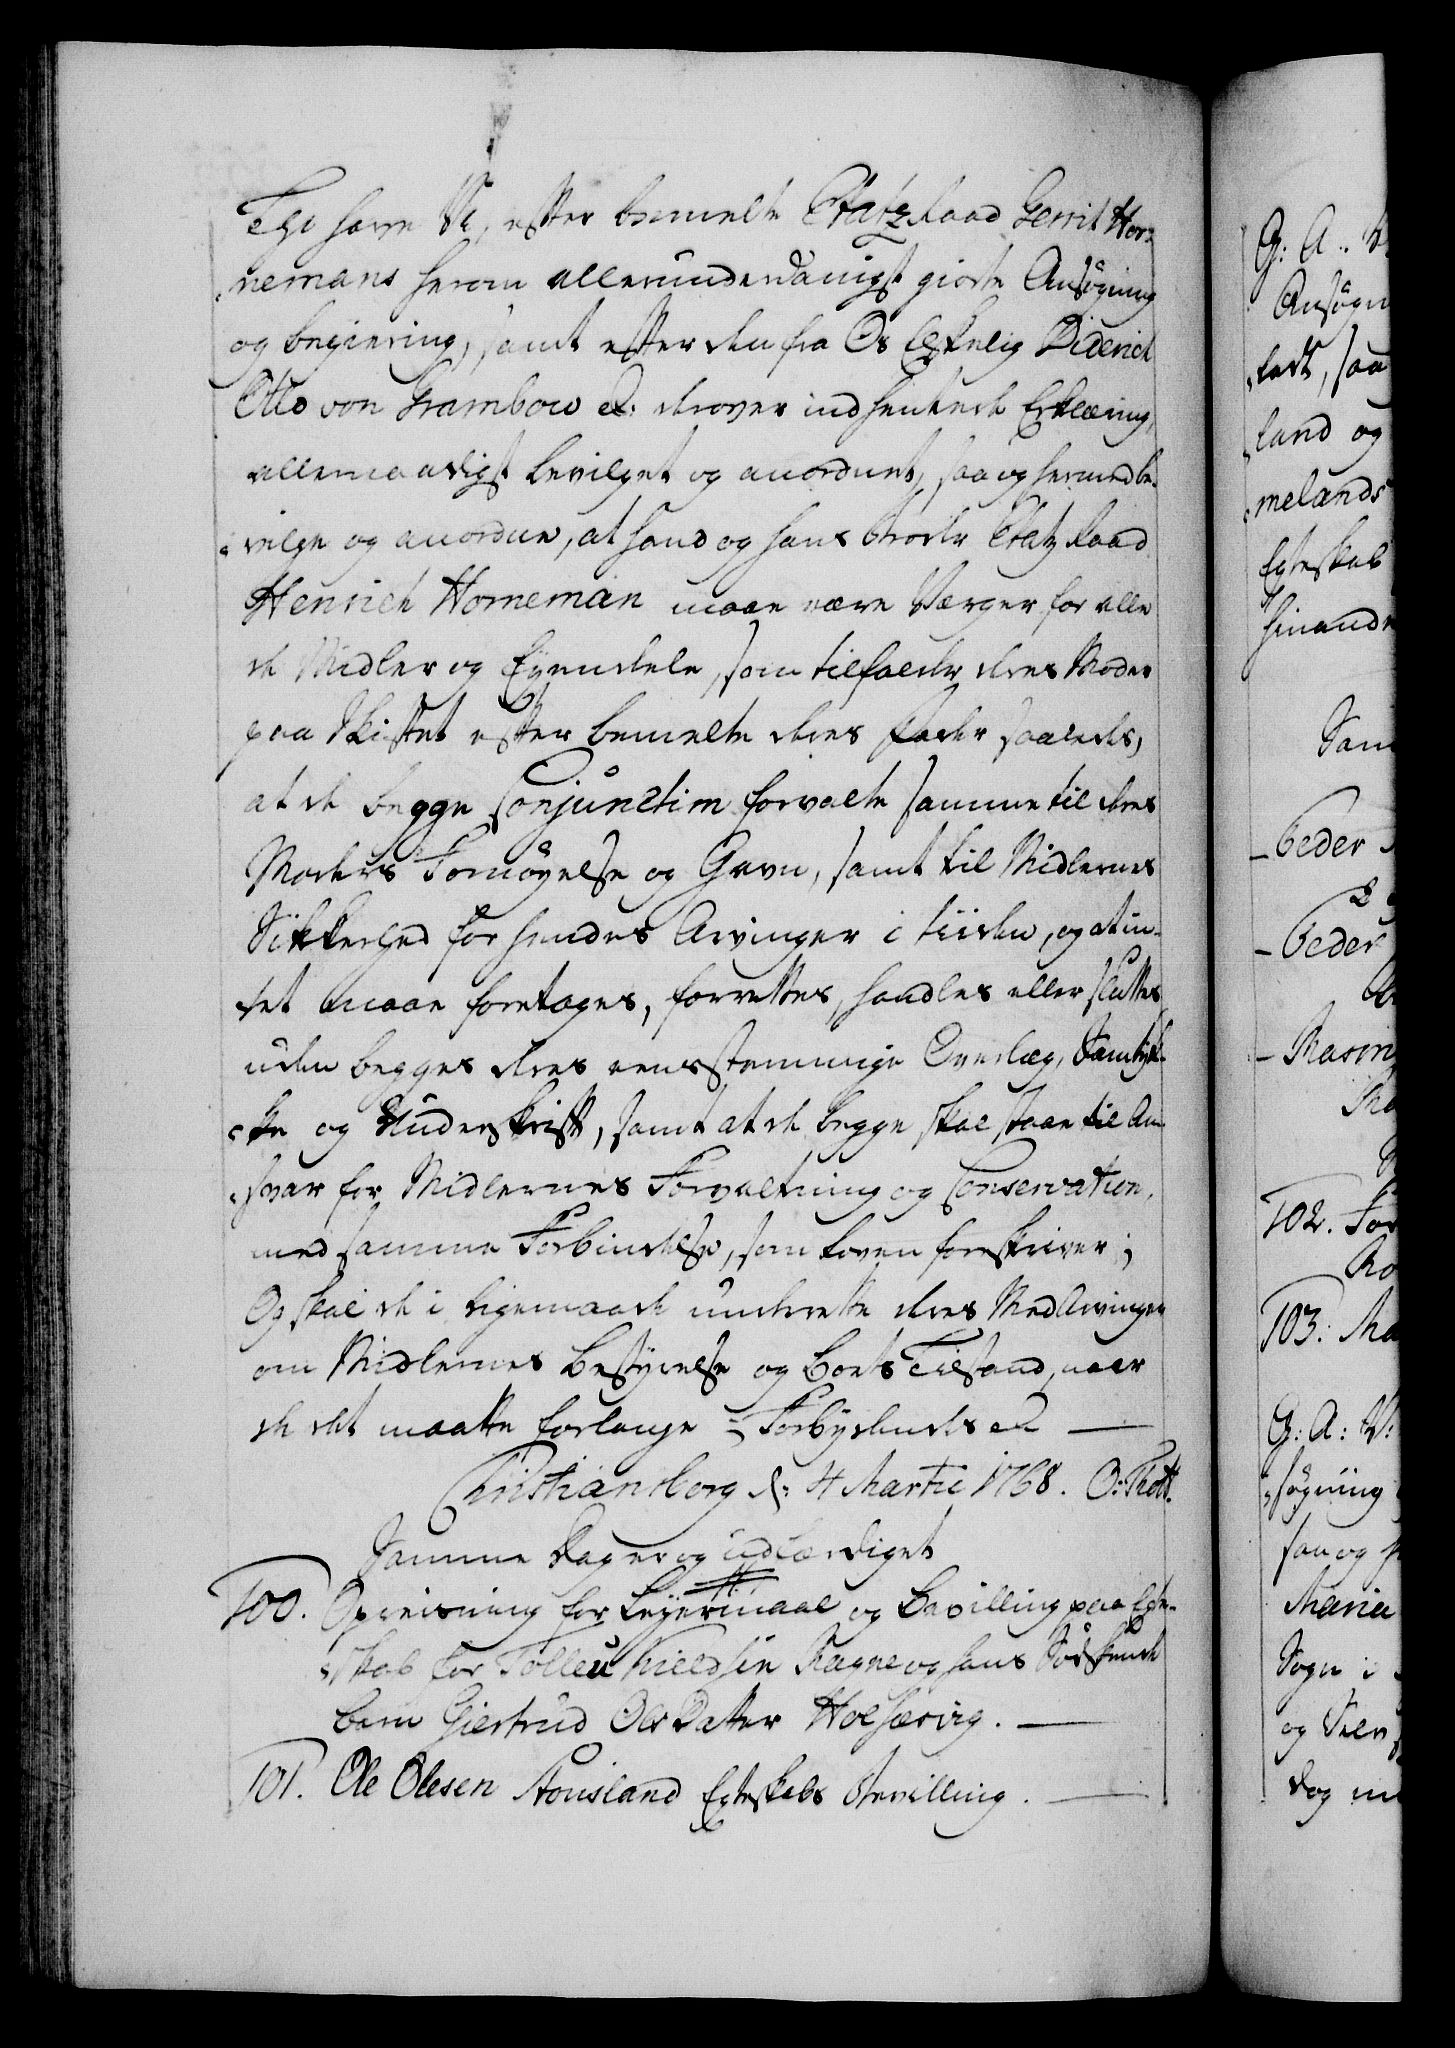 Thi have Vi, efter bemelte Etatz Raad Gerrit Hor-
nemans herom allerunderdanigst giorte Ansøgning
og begiering, samt efter den fra Os Elskelig Diderich
Otto von Grambow &: derover indhentede Erklæring,
allernaadigst bevilget og anordnet, saa og hermed be-
vilge og anordne, at hand og hans Broder Etatz Raad
Henrich Horneman maae være Værger for alle
de Midler og Eyendele, som tilfalder deres Moder
paa Skiftet efter bemelte deres Fader saaledes,
at de begge Conjunctim forvalte samme til deres
Moders Fornöyelse og Gavn, samt til Midlernes
Sikkerhed for hendes Arvinger i tiiden, og at in-
tet maae foretages, forrettes, handles eller sluttes,
uden begges deres eenstemmige Overlæg, Samtyk-
ke og Underskrift, samt at de begge skal staae til An-
svar for Midlernes Forvaltning og Conservation,
med samme Forbindelse, som Loven forskriver;
Og skal de i ligemaade underrette deres Med Arvinger
om Midlernes Bestyrelse og Boets Tilstand, naar
de det maatte forlange; Forbydendes &
Christiansborg d: 4 Martii 1768. O: Thott.
Samme Dag er og udfærdiget
100. Opreisning for Leyermaal og Bevilling paa Egte-
skab for Tolleu Kieldsen Ragne og hans Sødskende
barn Giertrud Ols Datter Holhervig.
101. Ole Olesen Stousland Egteskabs Bevilling.
G: A: V:
Ansøgn
ladt, saa
land og
melands
Egteskab
hinande
Sam
Peder
Peder
102. For
103. Ma
G: A: V:
søgning
saa og
Maria
Sogn i
og
dog